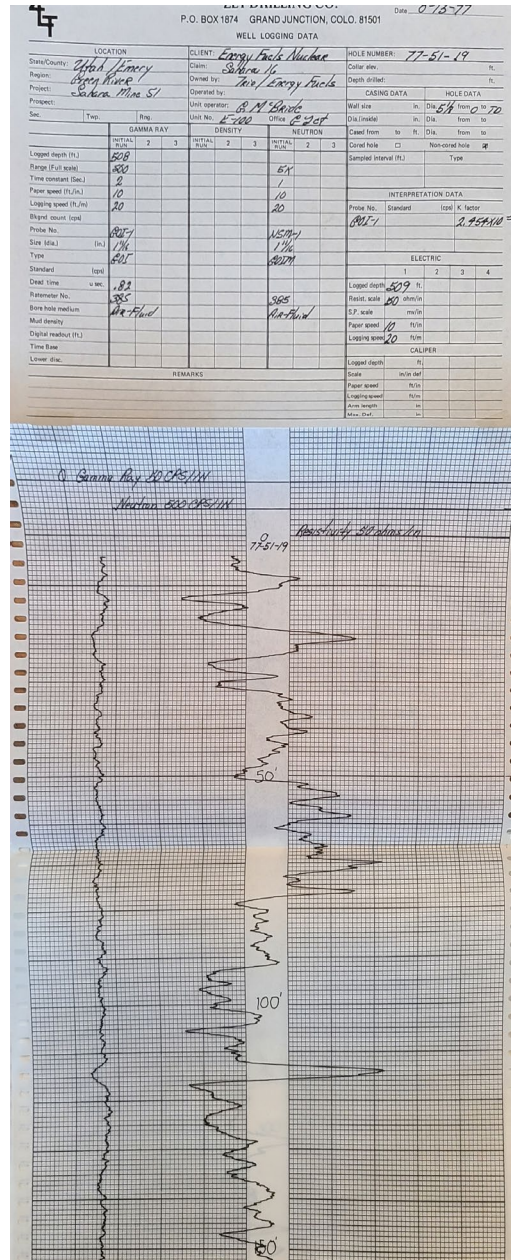 DRILLING CO.
P.O. BOX 1874 GRAND JUNCTION, COLO. 81501
Date
WELL LOGGING DATA
LOCATION
State/County: Utah / Emery
Region: Green River
Project: Sahara Mine 51
Prospect:
Sec. Twp. Rng.
CLIENT: Energy Fuels Nuclear
Claim: Sahara 16
Owned by: / Energy Fuels
Operated by:
Unit operator: G. McBride
Unit No. E-100 Office G Jct
HOLE NUMBER: 77-51-19
Collar elev. ft.
Depth drilled: ft.
CASING DATA HOLE DATA
Wall size in. Dia. 5 1/8 from 0 to 70
Dia.(inside) in. Dia. from to
Cased from to ft. Dia. from to
Cored hole Non-cored hole
Sampled interval (ft.) Type
GAMMA RAY DENSITY NEUTRON
INITIAL RUN 2 3 INITIAL RUN 2 3 INITIAL RUN 2 3
Logged depth (ft.) 508
Range (Full scale) 200 5K
Time constant (Sec.) 2 1
Paper speed (ft./in.) 10 10
Logging speed (ft./m) 20 20
Bkgnd count (cps)
Probe No. GOI-1 NSM-1
Size (dia.) (in.)
Type GOI
Standard (cps)
Dead time u sec. .82
Ratemeter No. 385 385
Bore hole medium Air-Fluid Air-Fluid
Mud density
Digital readout (ft.)
Time Base
Lower disc.
INTERPRETATION DATA
Probe No. Standard (cps) K factor
GOI-1
ELECTRIC
1 2 3 4
Logged depth 509 ft.
Resist. scale 50 ohm/in
S.P. scale mv/in
Paper speed 10 ft/in
Logging speed 20 ft/m
CALIPER
Logged depth ft.
Scale in/in def
Paper speed ft/in
Logging speed ft/m
Arm length in
Max. Def. in
REMARKS
Gamma Ray 20 CPS/IN
Neutron 500 CPS/IN
0
77-51-19
Resistivity 50 ohms/in
50'
100'
150'